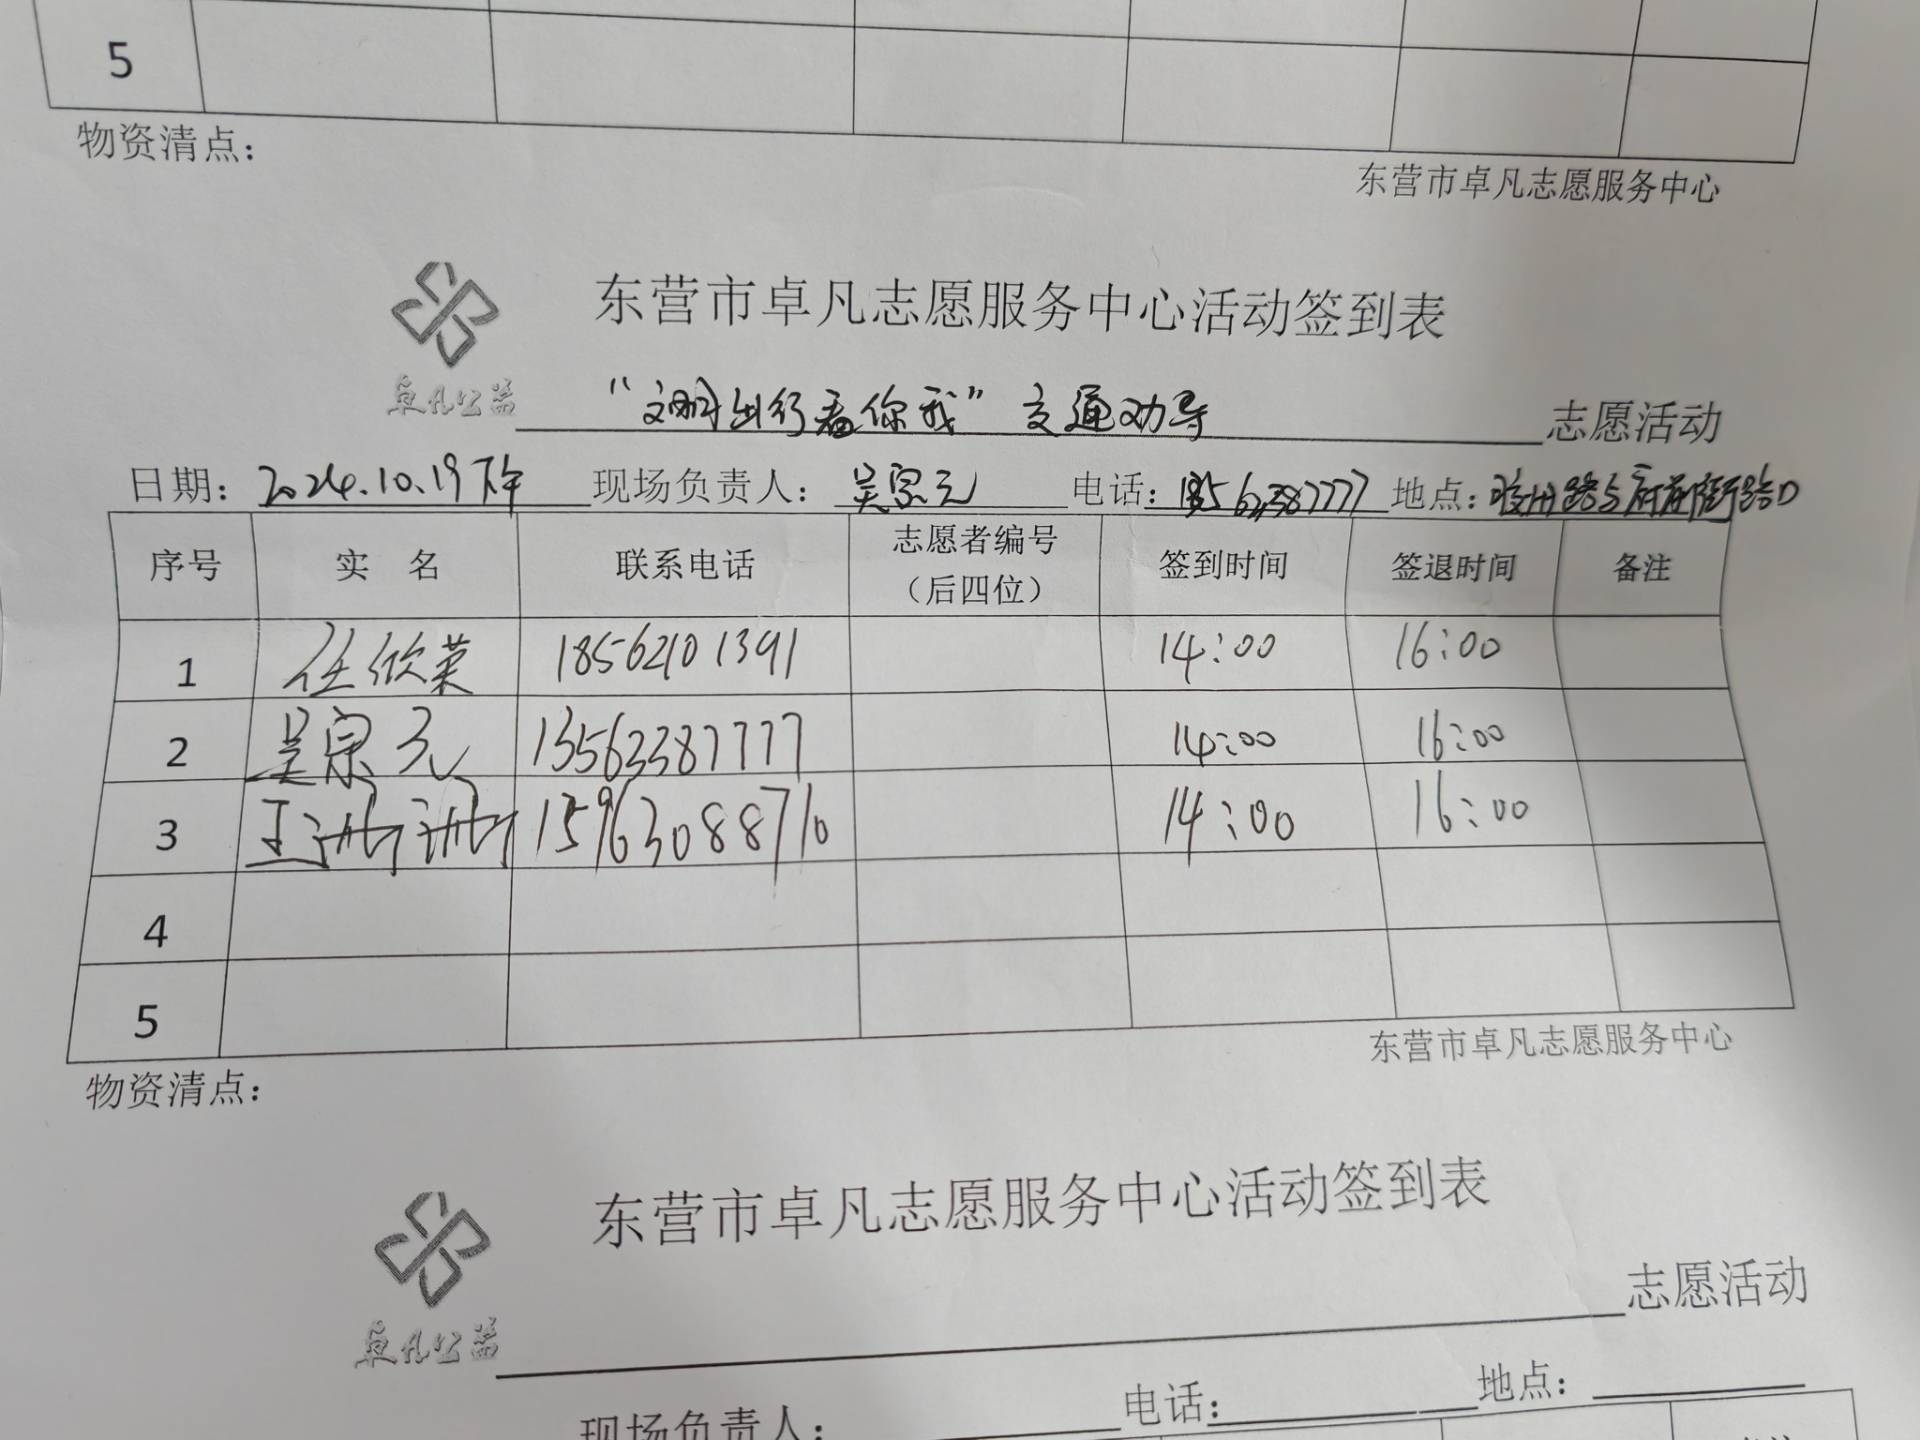 5
物资清点：
东营市卓凡志愿服务中心
东营市卓凡志愿服务中心活动签到表
卓凡公益
“文明出行看你我”交通劝导 志愿活动
日期：2024.10.19下午 现场负责人：吴宗元 电话：13563387777 地点：胶州路与府前街路口
序号 实 名 联系电话 志愿者编号（后四位） 签到时间 签退时间 备注
1 任欣荣 18562101391 14:00 16:00
2 吴宗元 13563387777 14:00 16:00
3 王洲洲 15963088710 14:00 16:00
4
5
东营市卓凡志愿服务中心
物资清点：
东营市卓凡志愿服务中心活动签到表
卓凡公益
志愿活动
现场负责人： 电话： 地点：